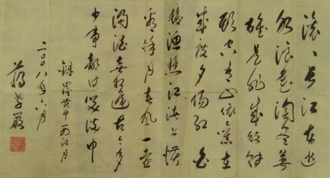 滚滚长江东逝
水浪花淘尽英
雄是非成败转
头空青山依旧在
几度夕阳红白
发渔樵江渚上惯
看秋月春风一壶
浊酒喜相逢古今多
少事都付笑谈中
二〇〇八年六月